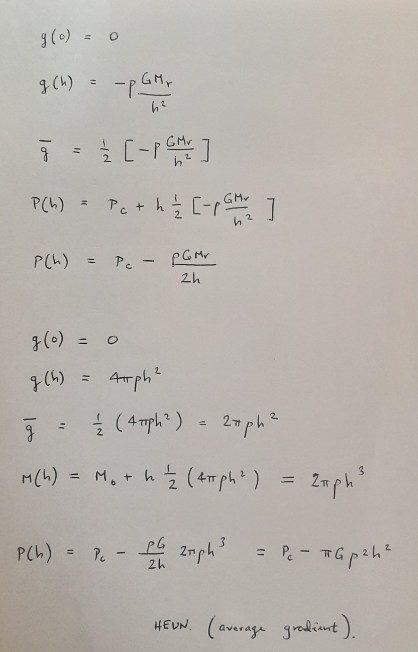 g(0) = 0
g(h) = -ρ GMr/h²
g̅ = 1/2 [-ρ GMr/h²]
P(h) = Pc + h 1/2 [-ρ GMr/h²]
P(h) = Pc - ρGMr/2h
g(0) = 0
g(h) = 4πρh²
g̅ = 1/2 (4πρh²) = 2πρh²
M(h) = M₀ + h 1/2 (4πρh²) = 2πρh³
P(h) = Pc - ρG/2h 2πρh³ = Pc - πGρ²h²
HEUN. (average gradient).